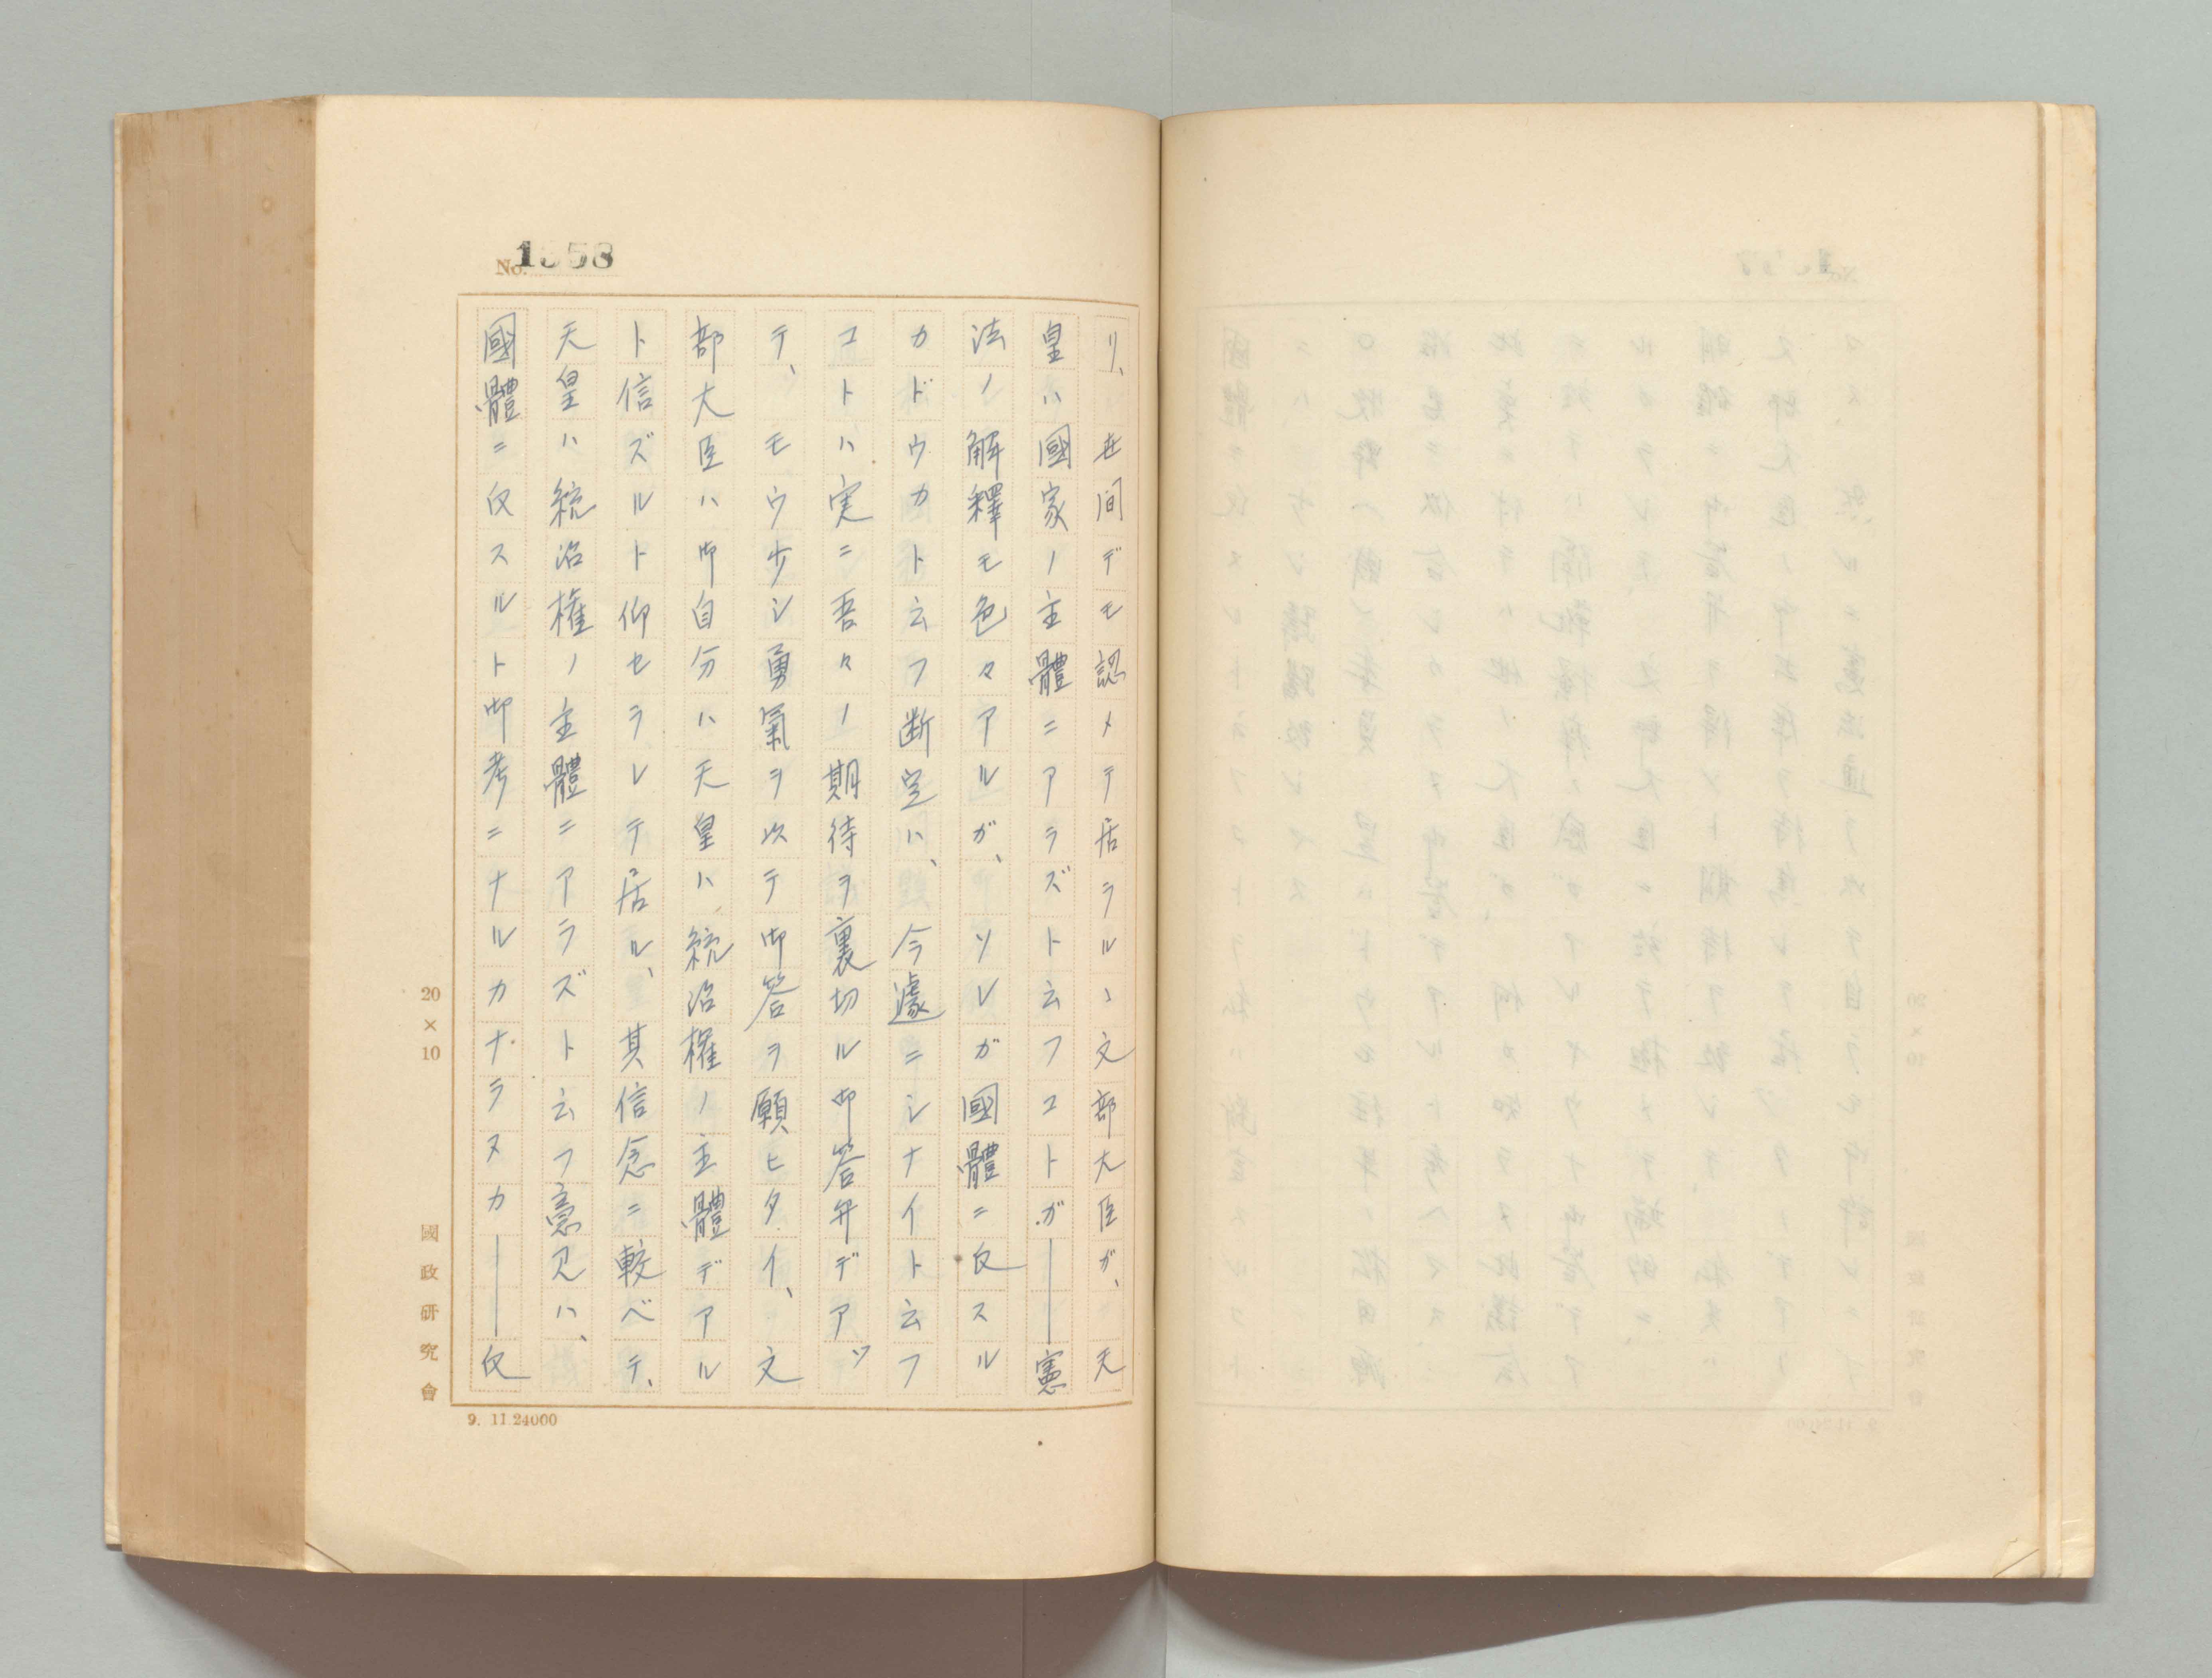 No. 1358
リ、世間デモ認メテ居ラルヽ文部大臣ガ、天
皇ハ國家ノ主體ニアラズト云フコトガ――憲
法ノ解釋モ色々アルガ、ソレガ國體ニ反スル
カドウカト云フ断定ハ、今遽ニシナイト云フ
コトハ実ニ吾々ノ期待ヲ裏切ル御答弁デアツ
テ、モウ少シ勇氣ヲ以テ御答ヲ願ヒタイ、文
部大臣ハ御自分ハ天皇ハ統治權ノ主體デアル
ト信ズルト仰セラレテ居ル、其信念ニ較ベテ、
天皇ハ統治權ノ主體ニアラズト云フ意見ハ、
國體ニ反スルト御考ニナルカナラヌカ――反
20×10
國政研究會
9. 11.24000